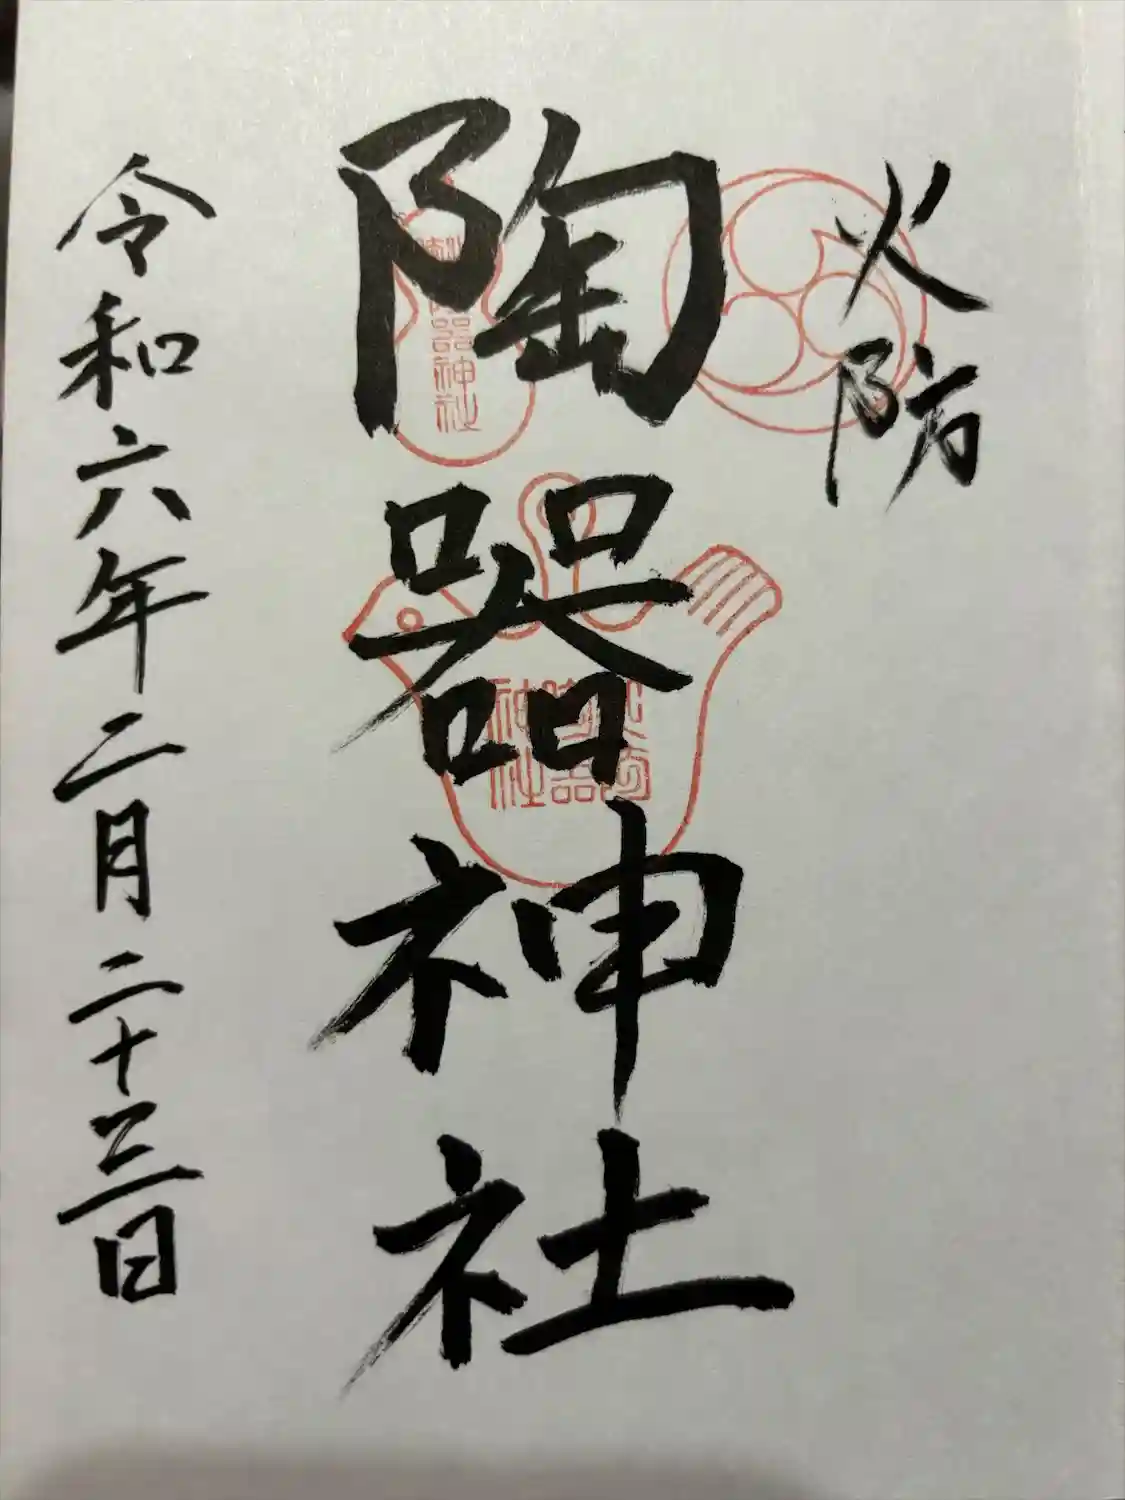 火防
陶器神社
令和六年二月二十三日
陶器神社